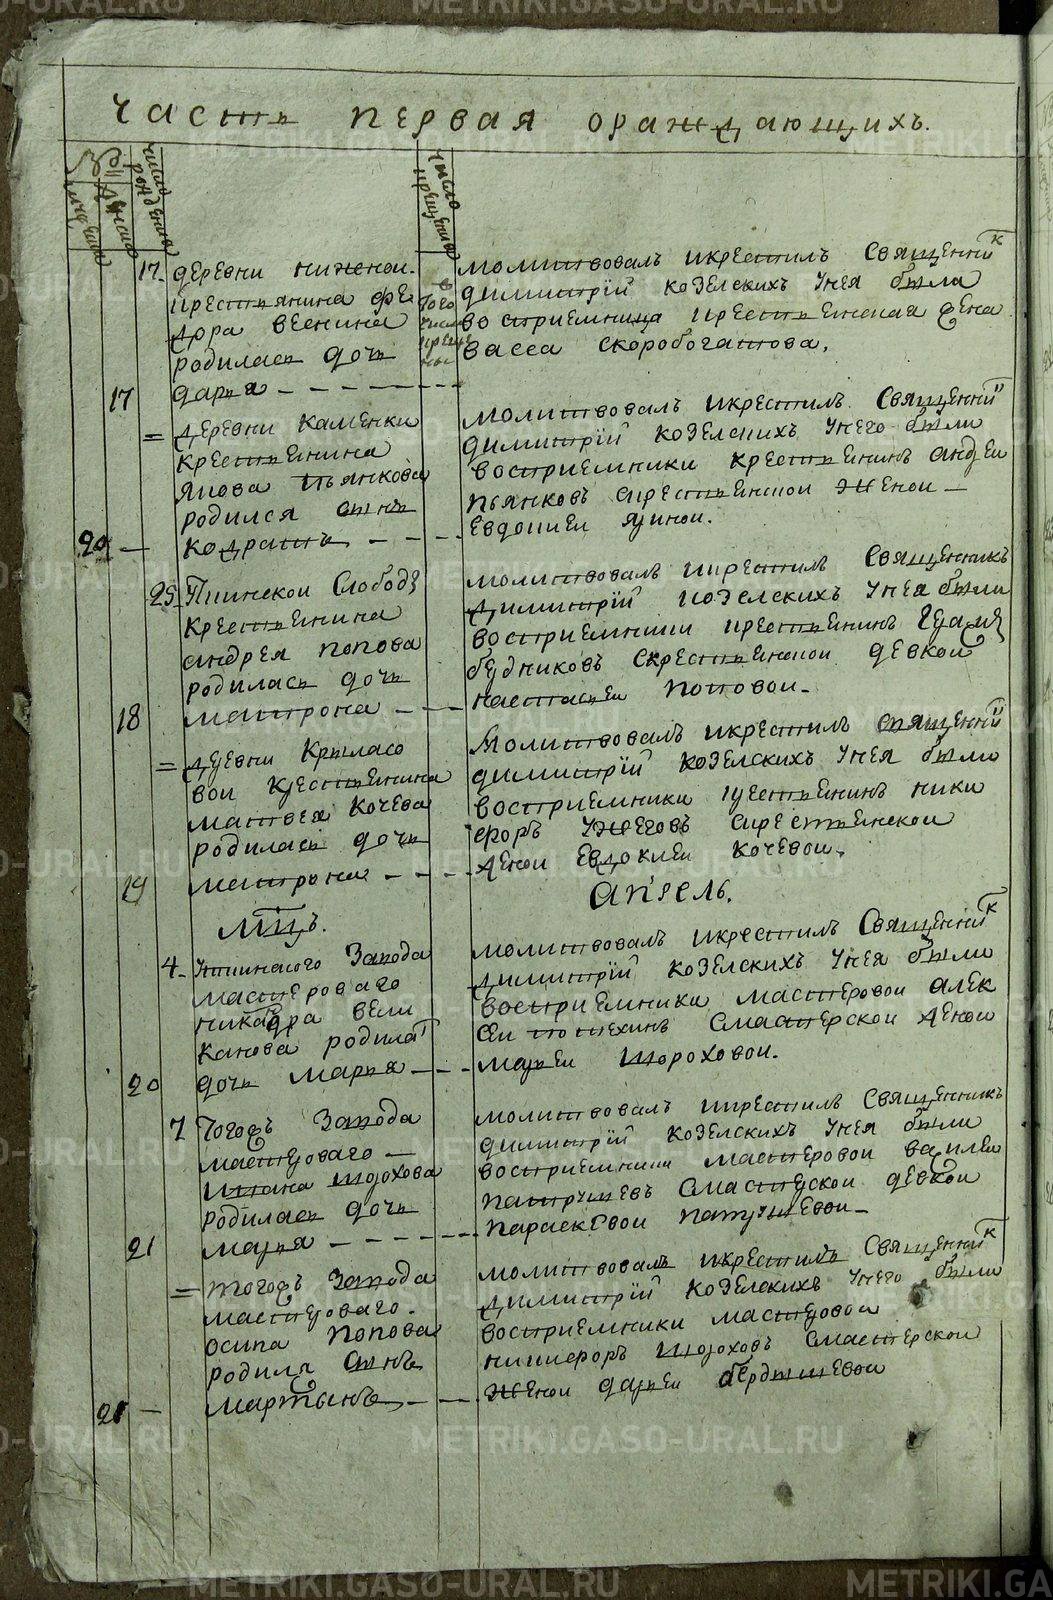 часть первая оражdающихъ.
17. деревни нижнои.
крестьянина фе
дора веснина
родилась дочь
17 дарья
в
того
числа
креще
ны
молитвовалъ икрестилъ священник
димитрїй козелскихъ унея была
восприемница крестьянская жена
васса скоробогатова.
= деревни каменки
крестьенина
якова пьянкова
родился сынъ
20 — кодратъ
молитвовалъ икрестилъ священни
димитрїй козелскихъ унего были
восприемники крестьенинъ андреи
пьянковъ скрестьенскои женои
евдокиеи яриной.
25. Ткинскои Слободе
крестьенина
андрея попова
родилась дочь
18 матрона
молитвовалъ икрестилъ священникъ
димитрїй козелских унея были
восприемники крестьенинъ
будниковъ скрестьенскои девкои
настасьеи поповои
= деревни Крыласо
вои крестьенина
матвея кочева
родилась дочь
19 матрона
молитвовалъ икрестилъ священни
димитрїй козелскихъ унея были
восприемники крестьенинъ ники
форъ ужеговъ скрестьенской
женои евдокиеи кочевои.
мцъ. апрель.
4. уткинского завода
мастерового
никандра вели
канова родила
20 дочь марья
молитвовалъ икрестилъ священник
димитрїй козелскихъ унея были
восприемники мастеровои алек
сеи потехинъ смастерскои женои
марьеи шороховои.
7 тогожъ завода
мастерового
ивана шорохова
родилась дочь
21 марья
молитвовалъ икрестилъ священникъ
димитрїй козелскихъ унея были
восприемники мастеровои василеи
патрушевъ смастерскои девкои
парасковои патрушевои
= тогожъ завода
мастерового.
осипа попова
родилса сынъ
21 — мартынъ
молитвовалъ икрестилъ священник
димитрїй козелскихъ унего были
восприемники мастеровои
никифоръ шороховъ смастерскои
женои дарьеи бердышевои
METRIKI.GASO-URAL.RU